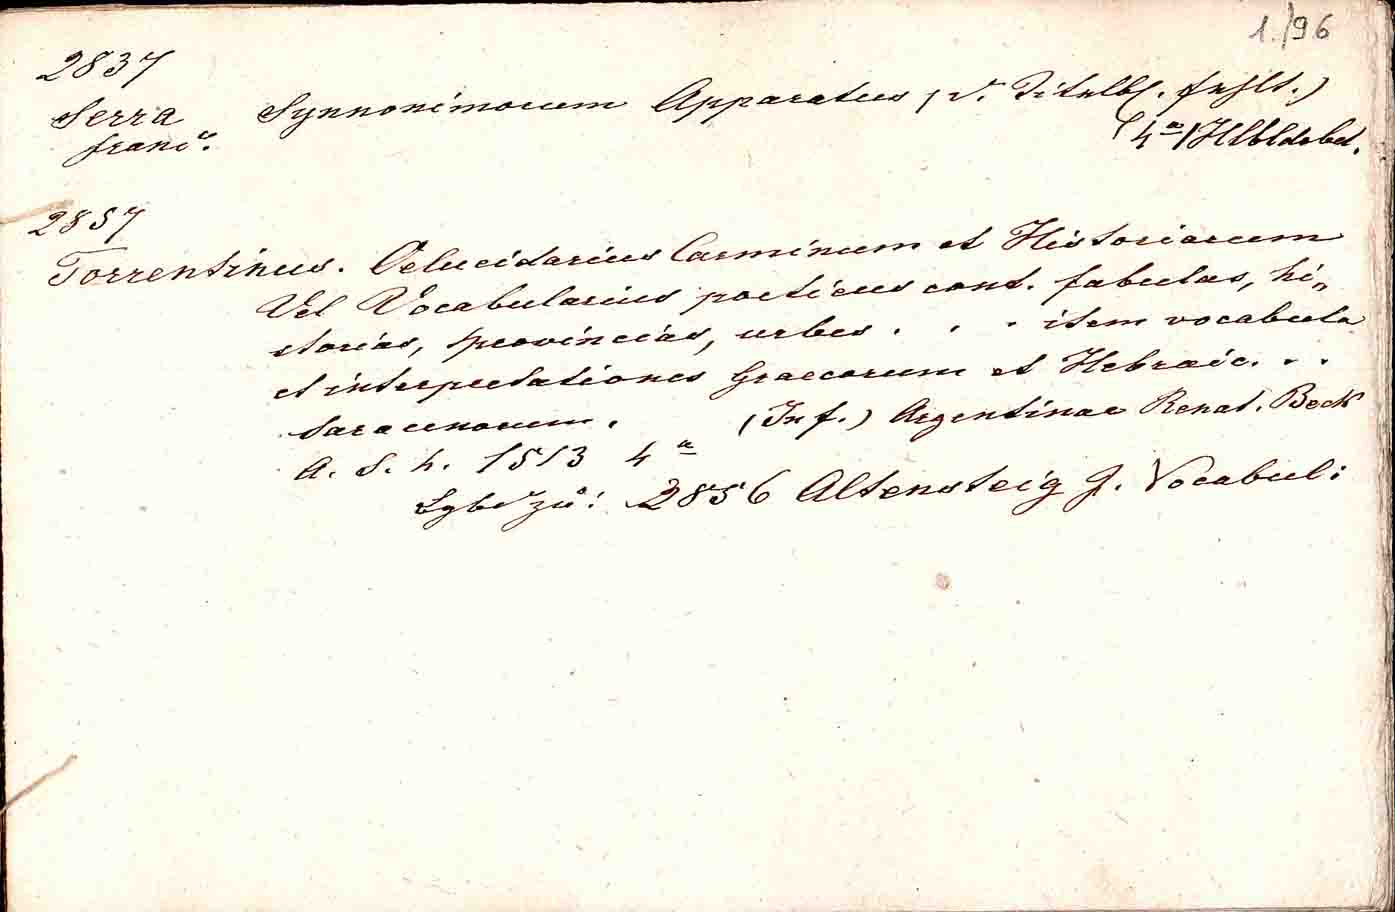 1./96
2837
Serra Synnonimorum Apparatus (d. Titelbl. fehlt.)
franc. 4° Hlbldrbd.
2857
Torrentinus. Elucidarius Carminum et Historiarum
Vel Vocabularius poeticus cont. fabulas, hi„
storias, provincias, urbes . . . item vocabula
et interpretationes Graecorum et Hebraic. . .
Saracenorum. (In f.) Argentinae Renat. Beck
A. S. h. 1513 4°
2856 Altensteig J. Vocabul: